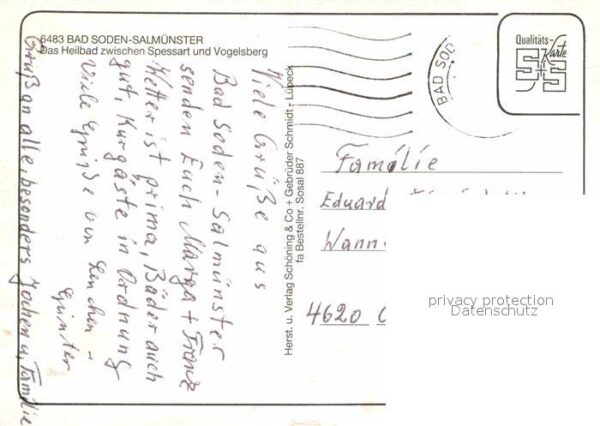 6483 BAD SODEN-SALMÜNSTER
Das Heilbad zwischen Spessart und Vogelsberg
Viele Grüße aus
Bad Soden-Salmünster
senden Euch Marga + Franz
Wetter ist prima, Bäder auch
gut, Kurgäste in Ordnung
Viele Grüße von Lenchen u
Günter
Gruß an alle, besonders Jochen u. Familie
Herst. u. Verlag Schöning & Co + Gebrüder Schmidt - Lübeck
fa Bestellnr. Sosal 887
BAD SOD
Qualitäts-
Karte
Familie
Eduard
Wann
4620 C
privacy protection
Datenschutz